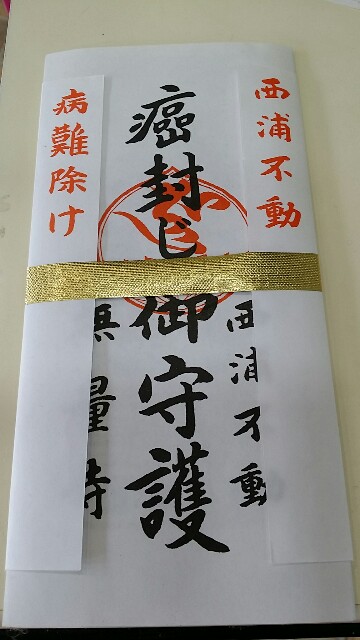 西浦不動
癌封じ御守護
病難除け
西浦不動
無量寺